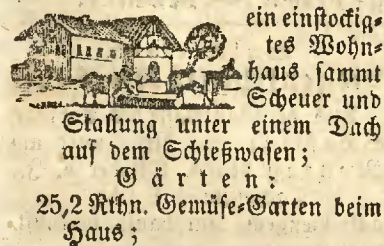 ein einstockig⸗
tes Wohn⸗
haus sammt
Scheuer und
Stallung unter einem Dach
auf dem Schießwasen;
Gärten:
25,2 Rthn. Gemüse⸗Garten beim
Haus;